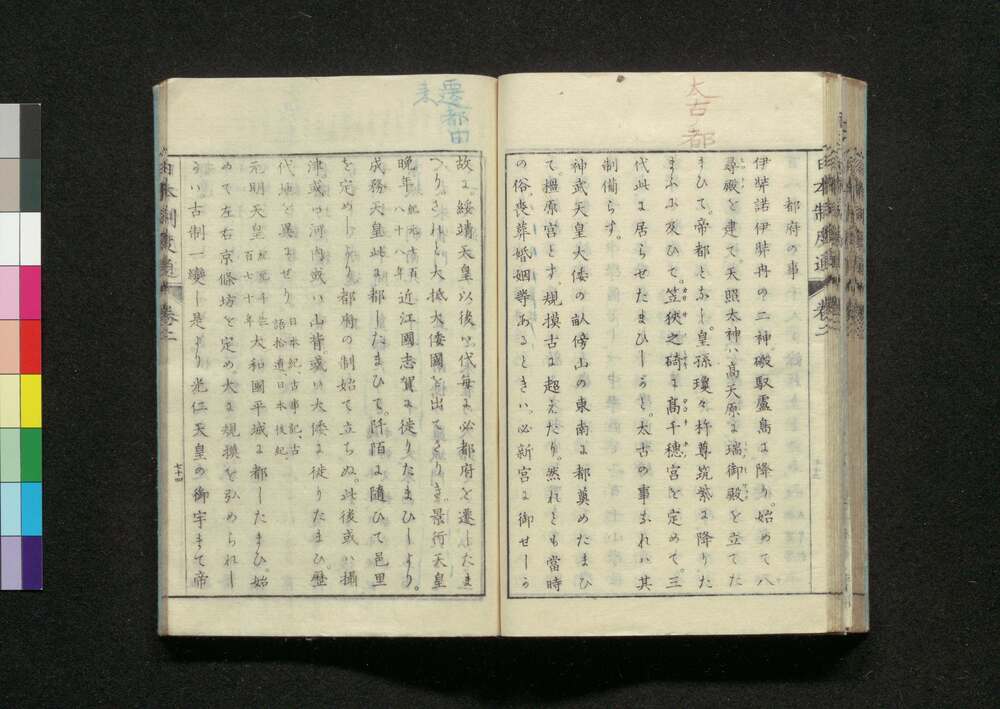 太古ノ都
都府の事
伊弉諾伊弉冉の二神磤馭盧島に降り始めて八
尋殿を建て天照太神ハ高天原に瑞御殿を立てた
まひて。帝都となし。皇孫瓊々杵尊筑紫に降りた
まふに及ひて。笠狹之碕に高千穂宮を定めて。三
代此に居らせたまひしかと。太古の事なれハ其
制備らす。
神武天皇大倭の畝傍山の東南に都奠めたまひ
て。橿原宮とす。規摸古に超えたり。然れとも當時
の俗。喪葬婚姻等あるときハ。必新宮に御せしか
遷都由
来
故に綏靖天皇以後ハ代毎に必都府を遷したま
へり。されと大抵大倭國を出てさりき。景行天皇
晩年。紀元七百八十八年近江國志賀に徙りたまひしより。
成務天皇此に都したまひて。阡陌に隨ひて邑里
を定めしより都府の制始て立ちぬ。此後或ハ攝
津或ハ河内或ハ山背或ハ大倭に徙りたまひ歴
代地を異にせり。日本紀、古事記、古語拾遺日本後紀。
元明天皇紀元千三百七十年大和國平城に都したまひ。始
めて左右京條坊を定め。大に規摸を弘められし
かハ古制一變し是より光仁天皇の御宇まて帝
日本制度通
卷二
七十四